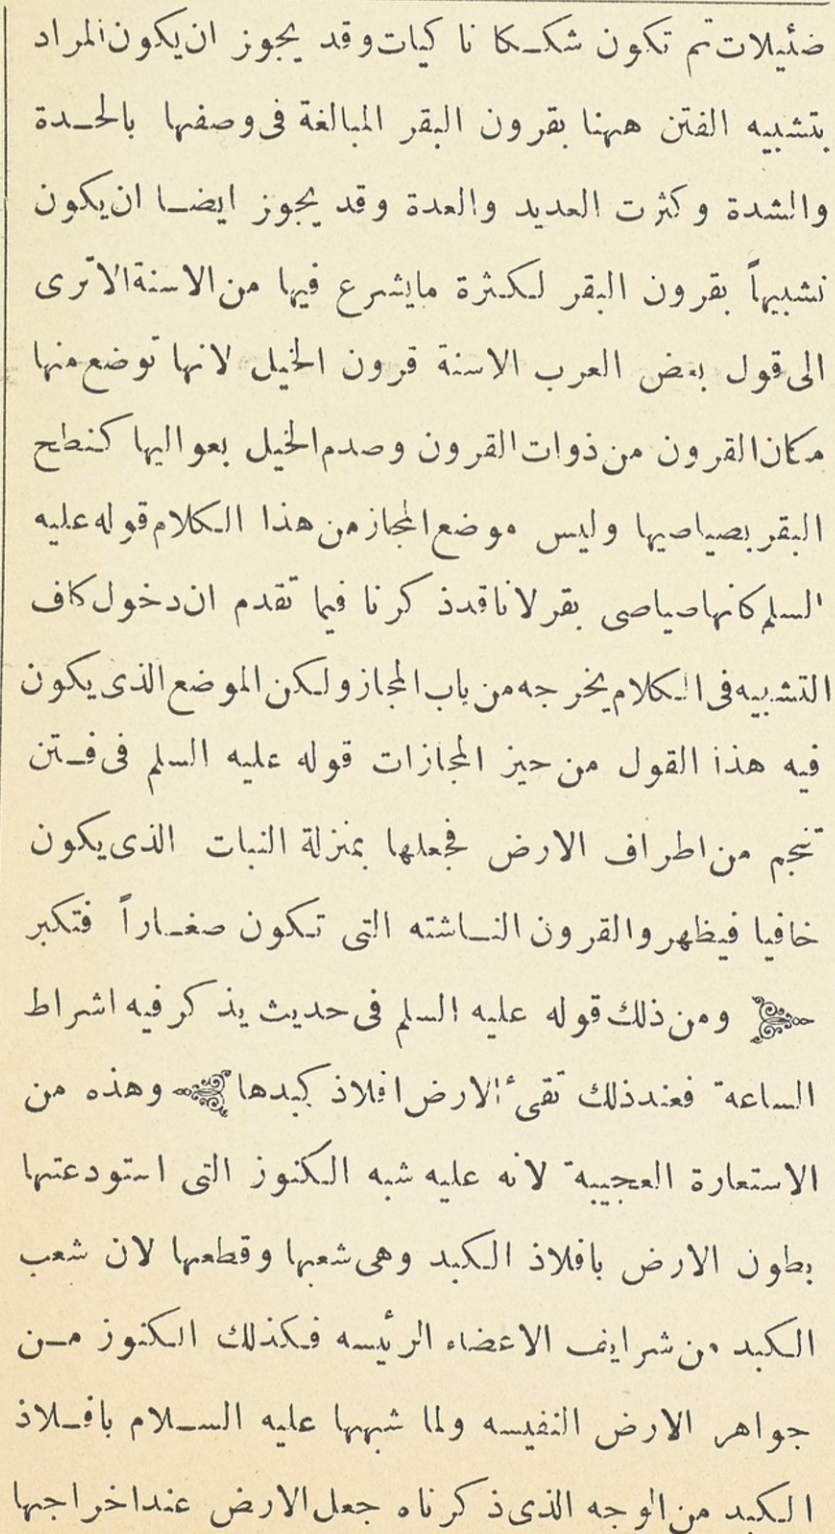 ضئيلات ثم تكون شككا نا كيات وقد يجوز ان يكون المراد
بتشبيه الفتن ههنا بقرون البقر المبالغة فى وصفها بالحدة
والشدة وكثرت العديد والعدة وقد يجوز ايضا ان يكون
نشبيهاً بقرون البقر لكثرة مايشرع فيها من الاسنة الاترى
الى قول بعض العرب الاسنة قرون الخيل لانها توضع منها
مكان القرون من ذوات القرون وصدم الخيل بعواليها كنطح
البقر بصياصيها وليس موضع المجاز من هذا الكلام قوله عليه
السلم كانها صياصى بقر لانا قد ذكرنا فيما تقدم ان دخول كاف
التشبيه فى الكلام يخرجه من باب المجاز ولكن الموضع الذى يكون
فيه هذا القول من حيز المجازات قوله عليه السلم فى فتن
تنجم من اطراف الارض فجعلها بمنزلة النبات الذى يكون
خافيا فيظهر والقرون الناشته التى تكون صغاراً فتكبر
ومن ذلك قوله عليه السلم فى حديث يذكر فيه اشراط
الساعة فعند ذلك تقىء الارض افلاذ كبدها وهذه من
الاستعارة العجيبة لانه عليه شبه الكنوز التى استودعتها
بطون الارض بافلاذ الكبد وهى شعبها وقطعها لان شعب
الكبد من شرايف الاعضاء الرئيسه فكذلك الكنوز من
جواهر الارض النفيسه ولما شبهها عليه السلام بافلاذ
الكبد من الوجه الذى ذكرناه جعل الارض عند اخراجها